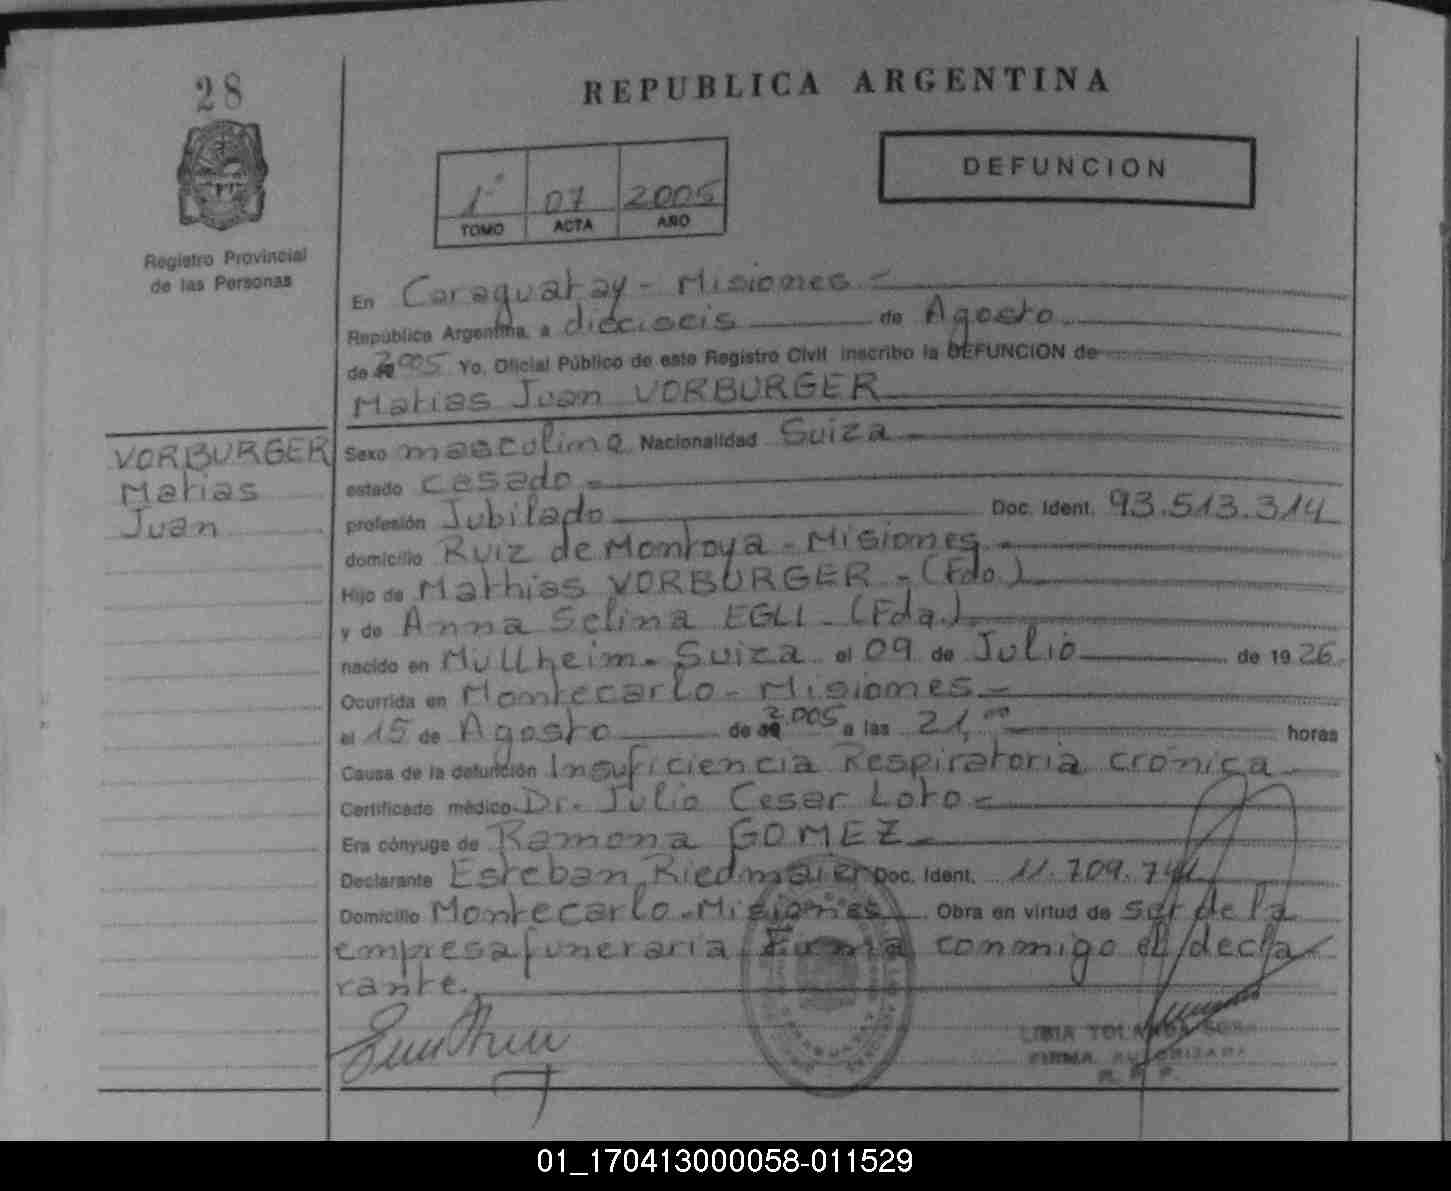 28
REPUBLICA ARGENTINA
DEFUNCION
1º 07 2005
TOMO ACTA AÑO
Registro Provincial
de las Personas
En Caraguatay - Misiones.-
República Argentina, a dieciseis de Agosto
de 2005 Yo, Oficial Público de este Registro Civil inscribo la DEFUNCION de
Matias Juan VORBURGER
VORBURGER
Matias
Juan
Sexo masculino Nacionalidad Suiza.-
estado casado.-
profesión Jubilado Doc. Ident. 93.513.314
domicilio Ruiz de Montoya - Misiones.-
Hijo de Mathias VORBURGER - (Fdo.)
y de Anna Selina EGLI - (Fda.)
nacido en Mullheim - Suiza el 09 de Julio de 1926.
Ocurrida en Montecarlo - Misiones.-
el 15 de Agosto de 2.005 a las 21,00 horas
Causa de la defunción Insuficiencia Respiratoria crónica
Certificado médico Dr. Julio Cesar Loto.-
Era cónyuge de Ramona GOMEZ.-
Declarante Esteban Riedmaier Doc. Ident. 11.709.741
Domicilio Montecarlo - Misiones Obra en virtud de ser de la
empresa funeraria Firma conmigo el decla
rante.
FIRMA AUTORIZADA
R. P. P.
01_170413000058-011529